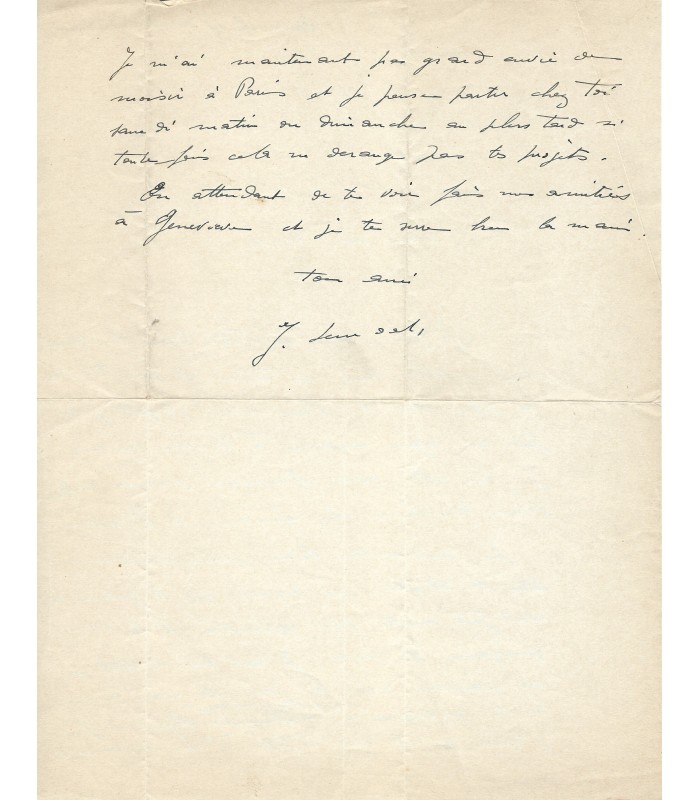 Je n'ai maintenant pas grand envie de
moisir à Paris et je pense partir chez toi
samedi matin ou dimanche au plus tard si
toutefois cela ne dérange pas tes projets.
En attendant de te voir fais mes amitiés
à Geneviève et je te serre bien la main.
Ton ami
J.